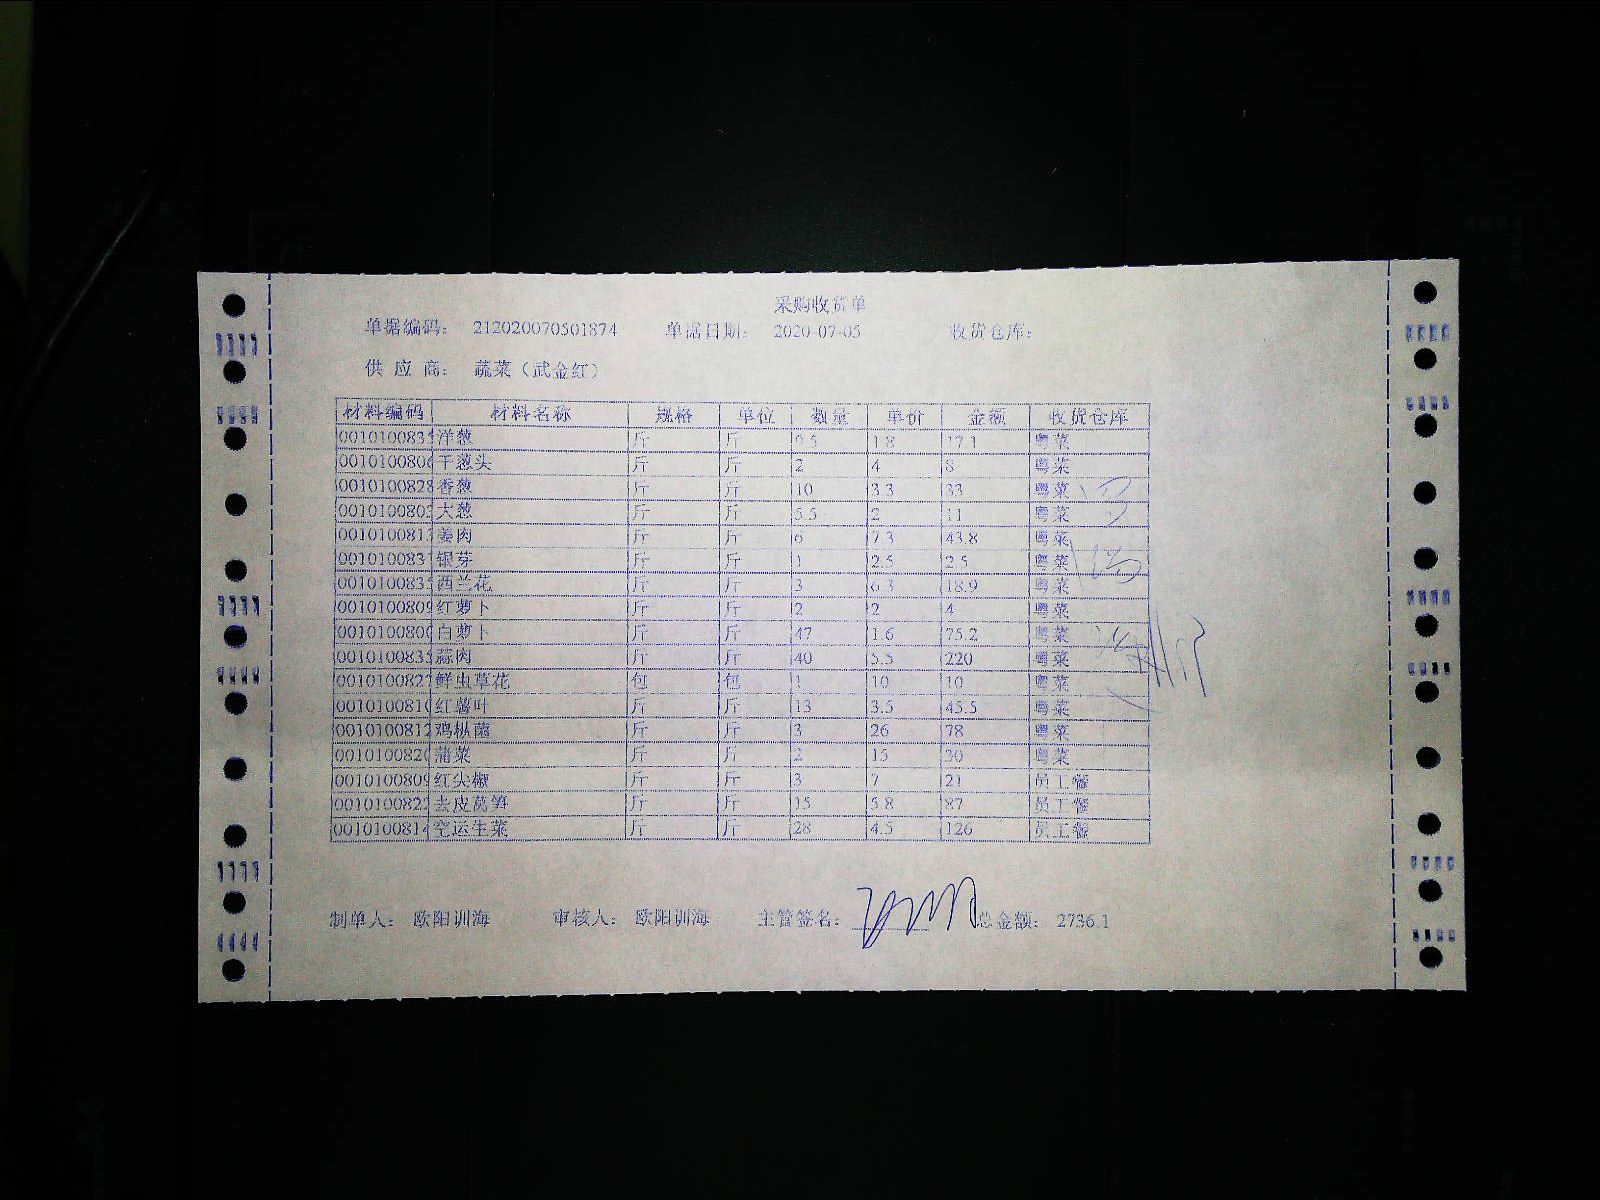 采购收货单
单据编码： 212020070501874 单据日期： 2020-07-05 收货仓库：
供 应 商： 蔬菜（武金红）
材料编码 材料名称 规格 单位 数量 单价 金额 收货仓库
0010100835 洋葱 斤 斤 9.5 1.8 17.1 粤菜
0010100806 干葱头 斤 斤 2 4 8 粤菜
0010100828 香葱 斤 斤 10 3.3 33 粤菜
001010080 大葱 斤 斤 5.5 2 11 粤菜
001010081 姜肉 斤 斤 6 7.3 43.8 粤菜
001010083 银芽 斤 斤 1 2.5 2.5 粤菜
001010083 西兰花 斤 斤 3 6.3 18.9 粤菜
0010100809 红萝卜 斤 斤 2 2 4 粤菜
001010080 白萝卜 斤 斤 47 1.6 75.2 粤菜
001010083 蒜肉 斤 斤 40 5.5 220 粤菜
001010082 鲜虫草花 包 包 1 10 10 粤菜
001010081 红薯叶 斤 斤 13 3.5 45.5 粤菜
0010100812 鸡枞菌 斤 斤 3 26 78 粤菜
001010082 蒲菜 斤 斤 2 15 30 粤菜
0010100809 红尖椒 斤 斤 3 7 21 员工餐
0010100822 去皮莴笋 斤 斤 15 5.8 87 员工餐
0010100814 空运生菜 斤 斤 28 4.5 126 员工餐
制单人： 欧阳训海 审核人： 欧阳训海 主管签名： 总金额： 2736.1